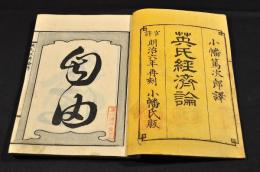 小幡篤次郎譯
英氏經濟論
官許 明治六年再刻 小幡氏版
自由